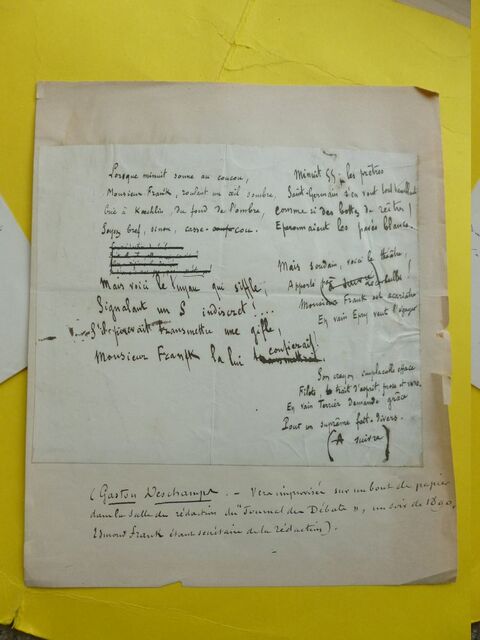 Lorsque minuit sonne au coucou,
Monsieur Frank, roulant un œil sombre,
Crie à Kœchlin, du fond de l'ombre,
Soyez bref, sinon, casse-cou.
Mais voici le tuyau qui siffle,
Signalant un S indiscret !...
S'il pouvait transmettre une gifle,
Monsieur Frank la lui confierait
Minuit les prêtres
Saint-Germain s'en vont tout
comme si des bottes de reîtres
Eperonnaient les pavés blancs.
Mais soudain, voici le théâtre,
Apporté par
Monsieur Frank est acariâtre
En vain Epry veut l'
Son crayon implacable efface
Filets, trait d'esprit, prose et vers,
En vain Terrier demande grâce
Pour un suprême fait-divers.
(A suivre)
(Gaston Deschamps. - Vers improvisés sur un bout de papier
dans la salle de rédaction du "Journal des Débats", un soir de 1890,
Edmond Frank étant secrétaire de la rédaction).